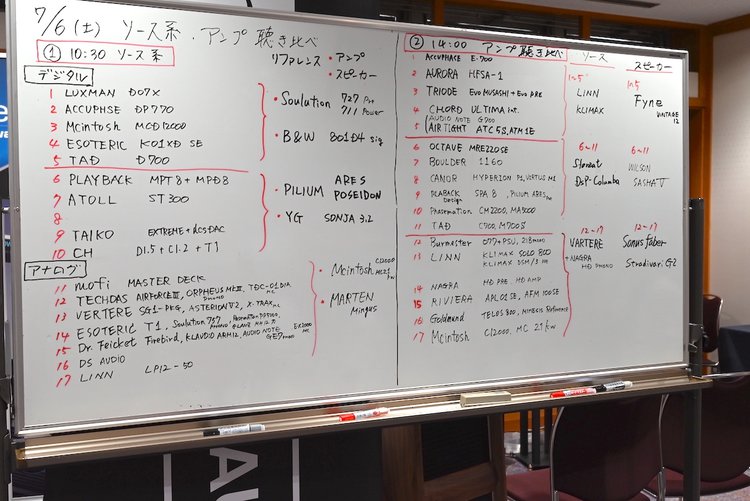 7/6(土) ソース系・アンプ聴き比べ
① 10:30 ソース系
リファレンス・アンプ
・スピーカー
デジタル
1 LUXMAN D07X
2 ACCUPHSE DP770
3 Mcintosh MCD12000
4 ESOTERIC K01XD SE
5 TAD D700
・Soulution 727 Pre
711 Power
・B&W 801D4 sig
6 PLAYBACK MPT8+MPD8
7 ATOLL ST300
8
9 TAIKO EXTREME+dCS DAC
10 CH D1.5+C1.2+T1
・PILIUM ARES
POSEIDON
・YG SONJA 3.2
アナログ
11 mofi MASTER DECK
12 TECHDAS AIRFORCEⅢ, ORPHEUS MKⅢ, TDC-01DIA
13 VERTERE SG1-PKG, ASTERIONⅤ2, X-TRAX
14 ESOTERIC T1, Soulution 757
15 Dr. Feicket Firebird, KLAUDIO ARM12, AUDIO NOTE
16 DS AUDIO
17 LINN LP12-50
・Mcintosh C12000
・MARTEN
Mingus
② 14:00 アンプ聴き比べ
ソース
スピーカー
1 ACCUPHASE E-700
2 AURORA HFSA-1
3 TRIODE Evo MUSASHI+Evo PRE
4 CHORD ULTIMA int.
AUDIO NOTE G700
5 AIRTIGHT ATC5S, ATM1E
1~5
LINN
KLIMAX
1~5
Fyne
VINTAGE
12
6 OCTAVE MRE220SE
7 BOULDER 1160
8 CANOR HYPERION P1, VIRTUS M1
9 DLABACK Design SPA 8, PILIUM ARES
10 Phasemation CM2200, MA5000
11 TAD C700, M700S
6~11
DSP-Columba
6~11
WILSON
SASHA V
12 Burmester 077+PSU, 218
13 LINN KLIMAX SOLO 800
KLIMAX DSM/3
14 NAGRA HD PRE, HD AMP
15 RIVIERA APL01SE, AFM100SE
16 Goldmund TELOS 800, MIMESIS Reference
17 Mcintosh C12000, MC 2.1kw
12~17
VARTERE
+NAGRA
HD PHONO
12~17
Sonus faber
Stradivari G2